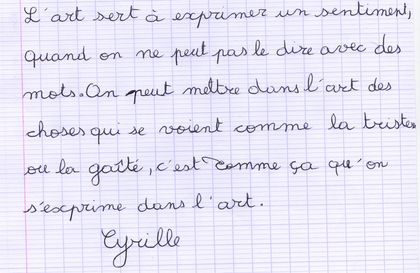 L'art sert à exprimer un sentiment,
quand on ne peut pas le dire avec des
mots. On peut mettre dans l'art des
choses qui se voient comme la tristes
ou la gaîté, c'est comme ça qu'on
s'exprime dans l'art.
Cyrille